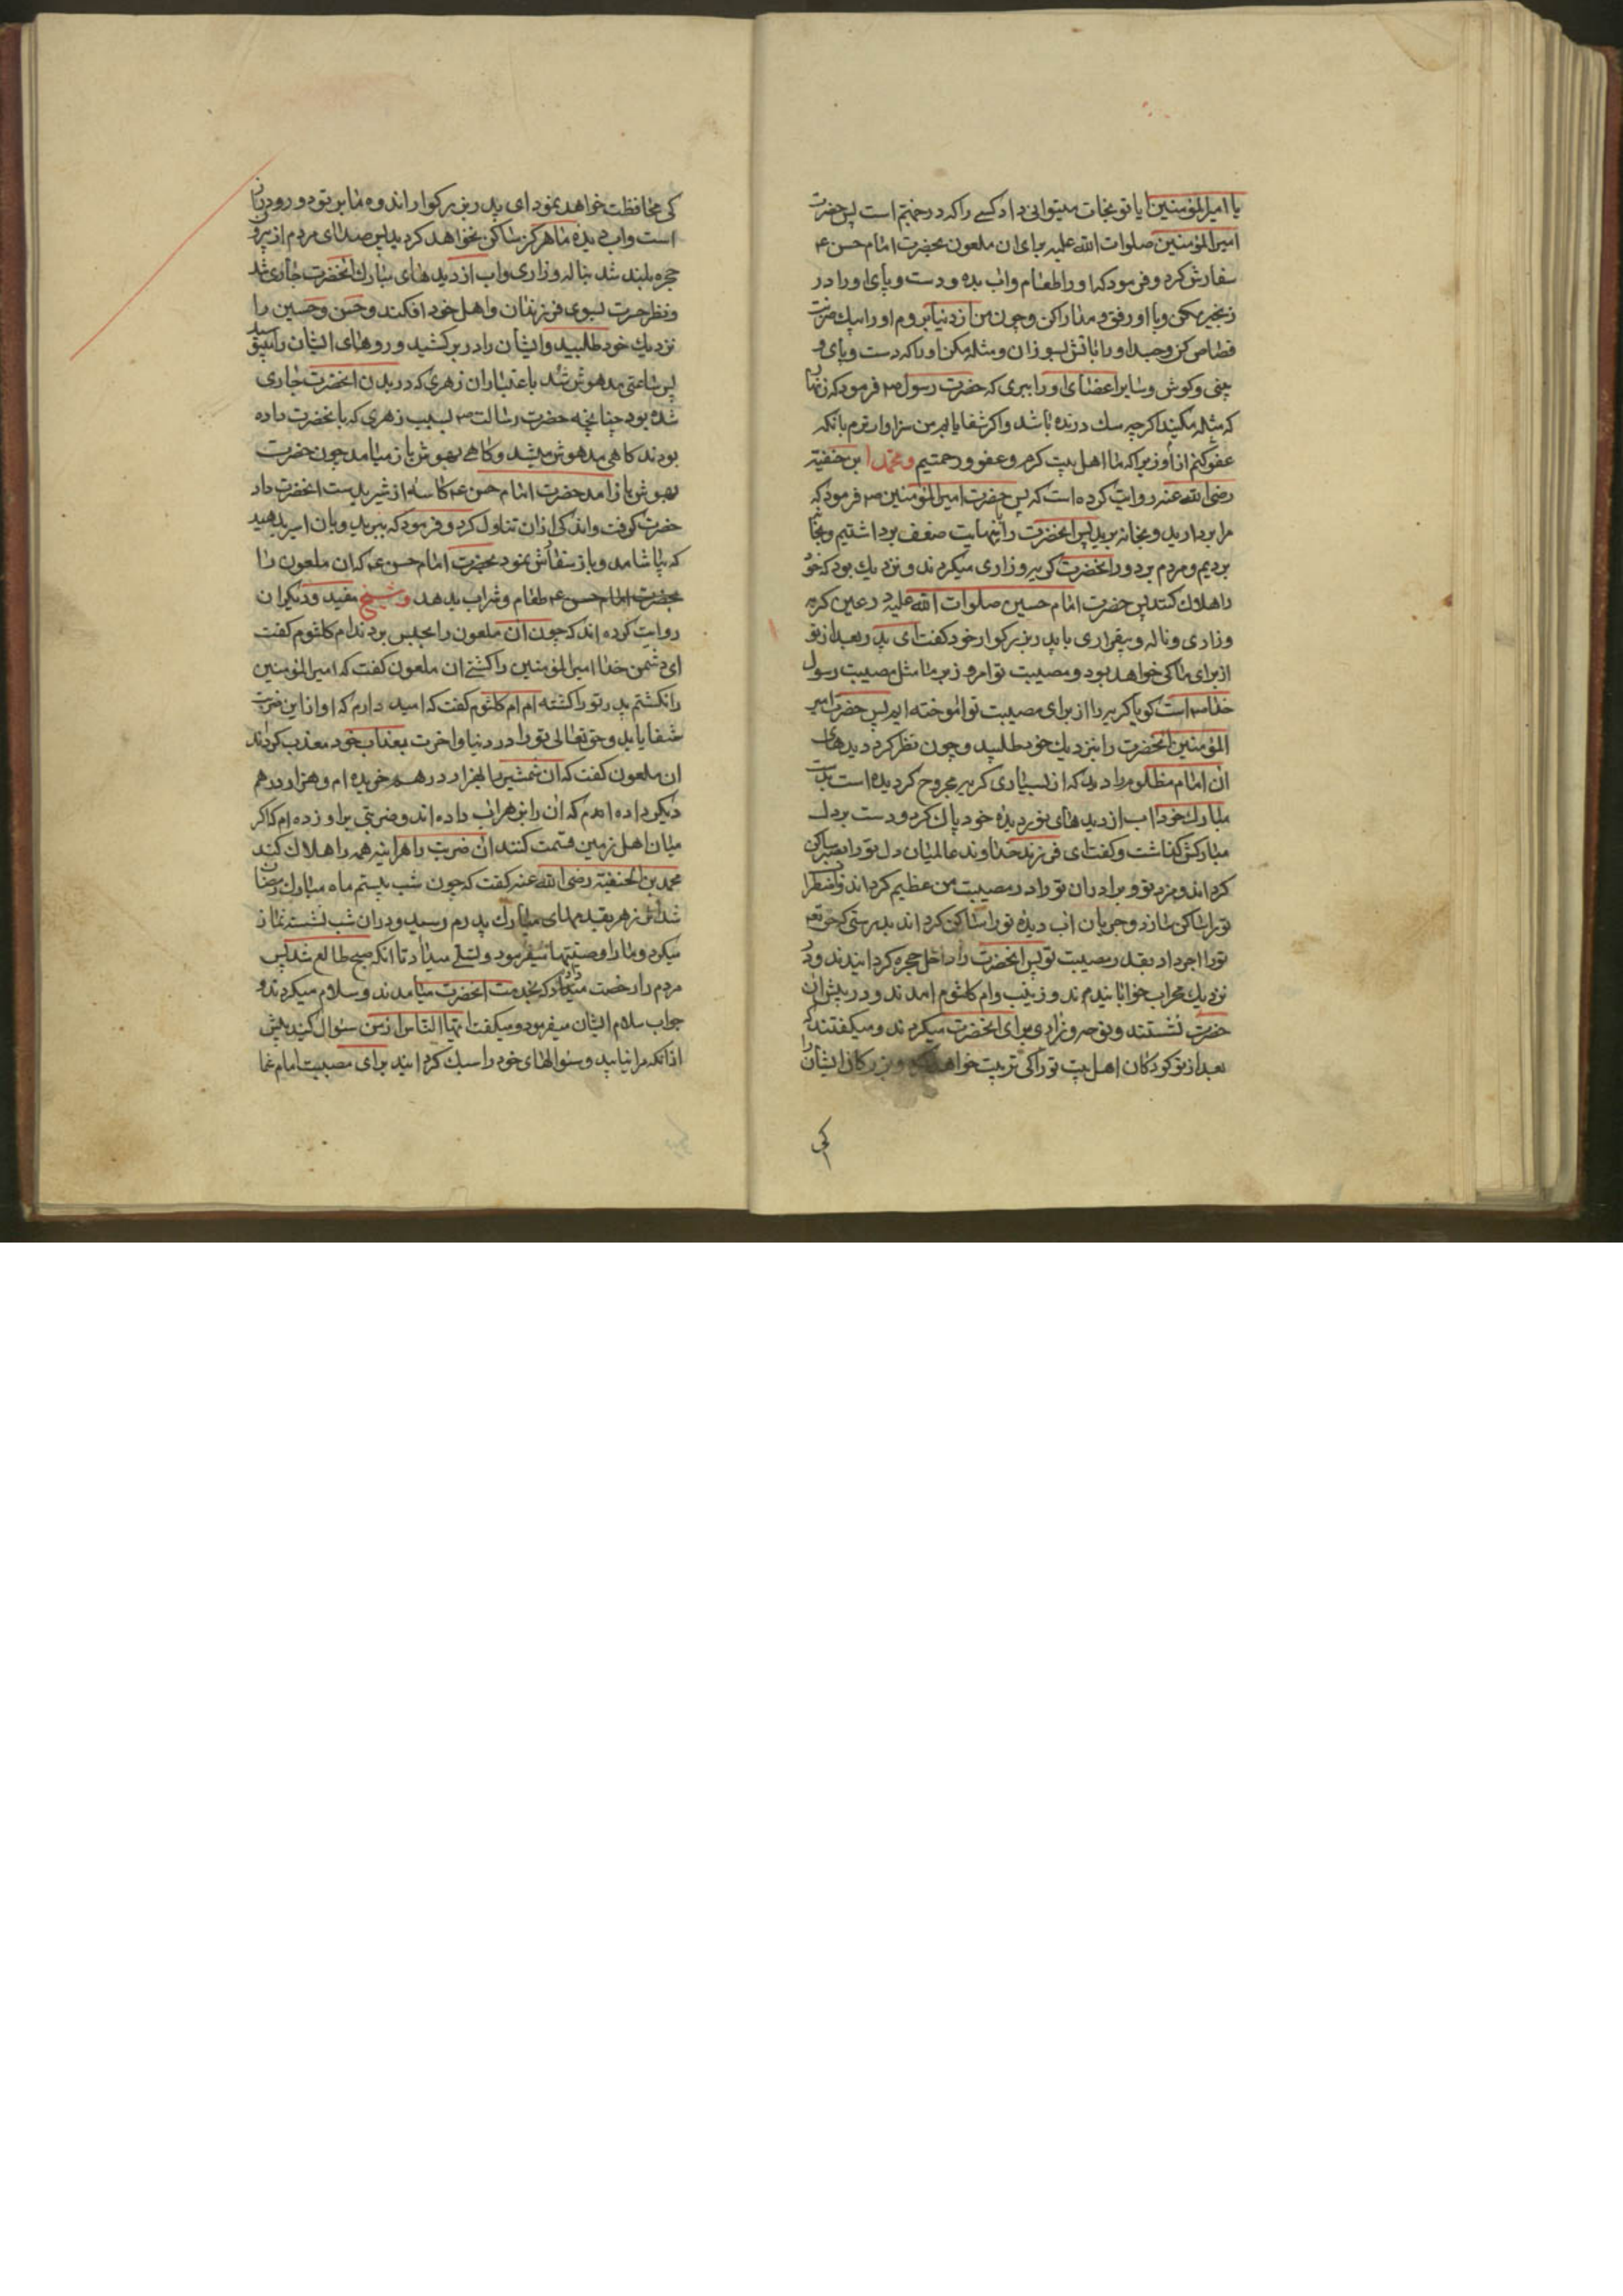 یا امیرالمؤمنین ایا تو نجات میتوانی داد کسی را که در جهنم است پس حضرت
امیرالمؤمنین صلوات الله علیه برای ان ملعون بحضرت امام حسن ع
سفارش کرد و فرمود که او را طعام و اب بده و دست و پای او را در
زنجیر مکن و با او رفق و مدارا کن و چون من از دنیا بروم او را بیک ضربت
قصاص کن و جسد او را باتش بسوزان و مثله مکن او را که دست و پای و
بینی و کوش و سایر اعضای او را ببری که حضرت رسول ص فرمود که زنهار
که مثله مکنید اکرچه سک درنده باشد و اکر شفا یابم من سزاوارترم بانکه
عفو کنم از او زیرا که ما اهل بیت کرم و عفو و رحمتیم و محمد ابن حنفیه
رضی الله عنه روایت کرده است که پس حضرت امیرالمؤمنین ص فرمود که
مرا بردارید و بخانه برید پس انحضرت را بنهایت ضعف برداشتیم و بخانه
بردیم و مردم بر دور انحضرت کریه و زاری میکردند و نزدیک بود که خود
را هلاک کنند پس حضرت امام حسین صلوات الله علیه در عین کریه
و زاری و ناله و بیقراری با پدر بزرکوار خود کفت ای پدر بعد از تو
از برای ما کی خواهد بود و مصیبت تو امروز بر ما مثل مصیبت رسول
خدا ص است کویا کریه را از برای مصیبت تو اموخته ایم پس حضرت امیر
المؤمنین انحضرت را بنزدیک خود طلبید و چون نظر کرد دیدهای
ان امام مظلوم را دید که از بسیاری کریه مجروح کردیده است بدست
مبارک خود اب از دیدهای نور دیده خود پاک کرد و دست بر دل
مبارکش کذاشت و کفت ای فرزند خداوند عالمیان دل تو را بصبر ساکن
کرداند و مزد تو و برادران تو را در مصیبت من عظیم کرداند و اضطراب
تو را ساکن سازد و جریان اب دیده تو را ساکن کرداند بدرستی که حق تعالی
تو را اجر داد بقدر مصیبت تو پس انحضرت را داخل حجره کردانیدند و در
نزدیک محراب خوابانیدم ند و زینب و ام کلثوم امدند و در پیش ان
حضرت نشستند و نوحه و زاری برای انحضرت میکردند و میکفتند که
بعد از تو کودکان اهل بیت تو را کی تربیت خواهد کرد و بزرکان ایشان را
کی
کی محافظت خواهد نمود ای پدر بزرکوار اندوه ما بر تو دور و دراز
است و اب دیده ما هرکز ساکن نخواهد کردید پس صدای مردم از بیرون
حجره بلند شد بناله و زاری و اب از دیدهای مبارک انحضرت جاری شد
و نظر حسرت بسوی فرزندان و اهل خود افکند و حسن و حسین را
نزدیک خود طلبید و ایشان را در بر کشید و روهای ایشان را میبوسید
پس ساعتی مدهوش شد باعتبار ان زهری که در بدن انحضرت جاری
شده بود چنانچه حضرت رسالت ص بسبب زهری که بانحضرت داده
بودند کاهی مدهوش میشد و کاهی بهوش باز میامد چون حضرت
بهوش باز امد حضرت امام حسن ع کاسه از شیر بدست انحضرت داد
حضرت کرفت و اندکی از ان تناول کرد و فرمود که ببرید و بان اسیر بدهید
که بیاشامد و باز سفارش نمود بحضرت امام حسن ع که ان ملعون را
بحضرت امام حسن ع طعام و شراب بدهد و شیخ مفید و دیکران
روایت کرده اند که چون ان ملعون را بحبس بردند ام کلثوم کفت
ای دشمن خدا امیرالمؤمنین را کشتی ان ملعون کفت که امیرالمؤمنین
را نکشتم پدر تو را کشته ام ام کلثوم کفت که امید دارم که او از این ضربت
شفا یابد و حق تعالی تو را در دنیا و اخرت بعذاب خود معذب کرداند
ان ملعون کفت که ان شمشیر را بهزار درهم خریده ام و هزار درهم
دیکر داده ام که ان را بزهر اب داده اند و ضربتی بر او زده ام که اکر
میان اهل زمین قسمت کنند ان ضربت را هراینه همه را هلاک کند
محمد بن الحنفیه رضی الله عنه کفت که چون شب بیستم ماه مبارک رمضان
شد اثر زهر بقدمهای مبارک پدرم رسید و در ان شب نشسته نماز
میکرد و ما را وصیتها میفرمود و تسلی میداد تا انکه صبح طالع شد پس
مردم را رخصت میداد که بخدمت انحضرت میامدند و سلام میکردند و
جواب سلام ایشان میفرمود و میکفت ایها الناس از من سئوال کنید پیش
از انکه مرا نیابید و سئوالهای خود را سبک کردانید برای مصیبت امام شما